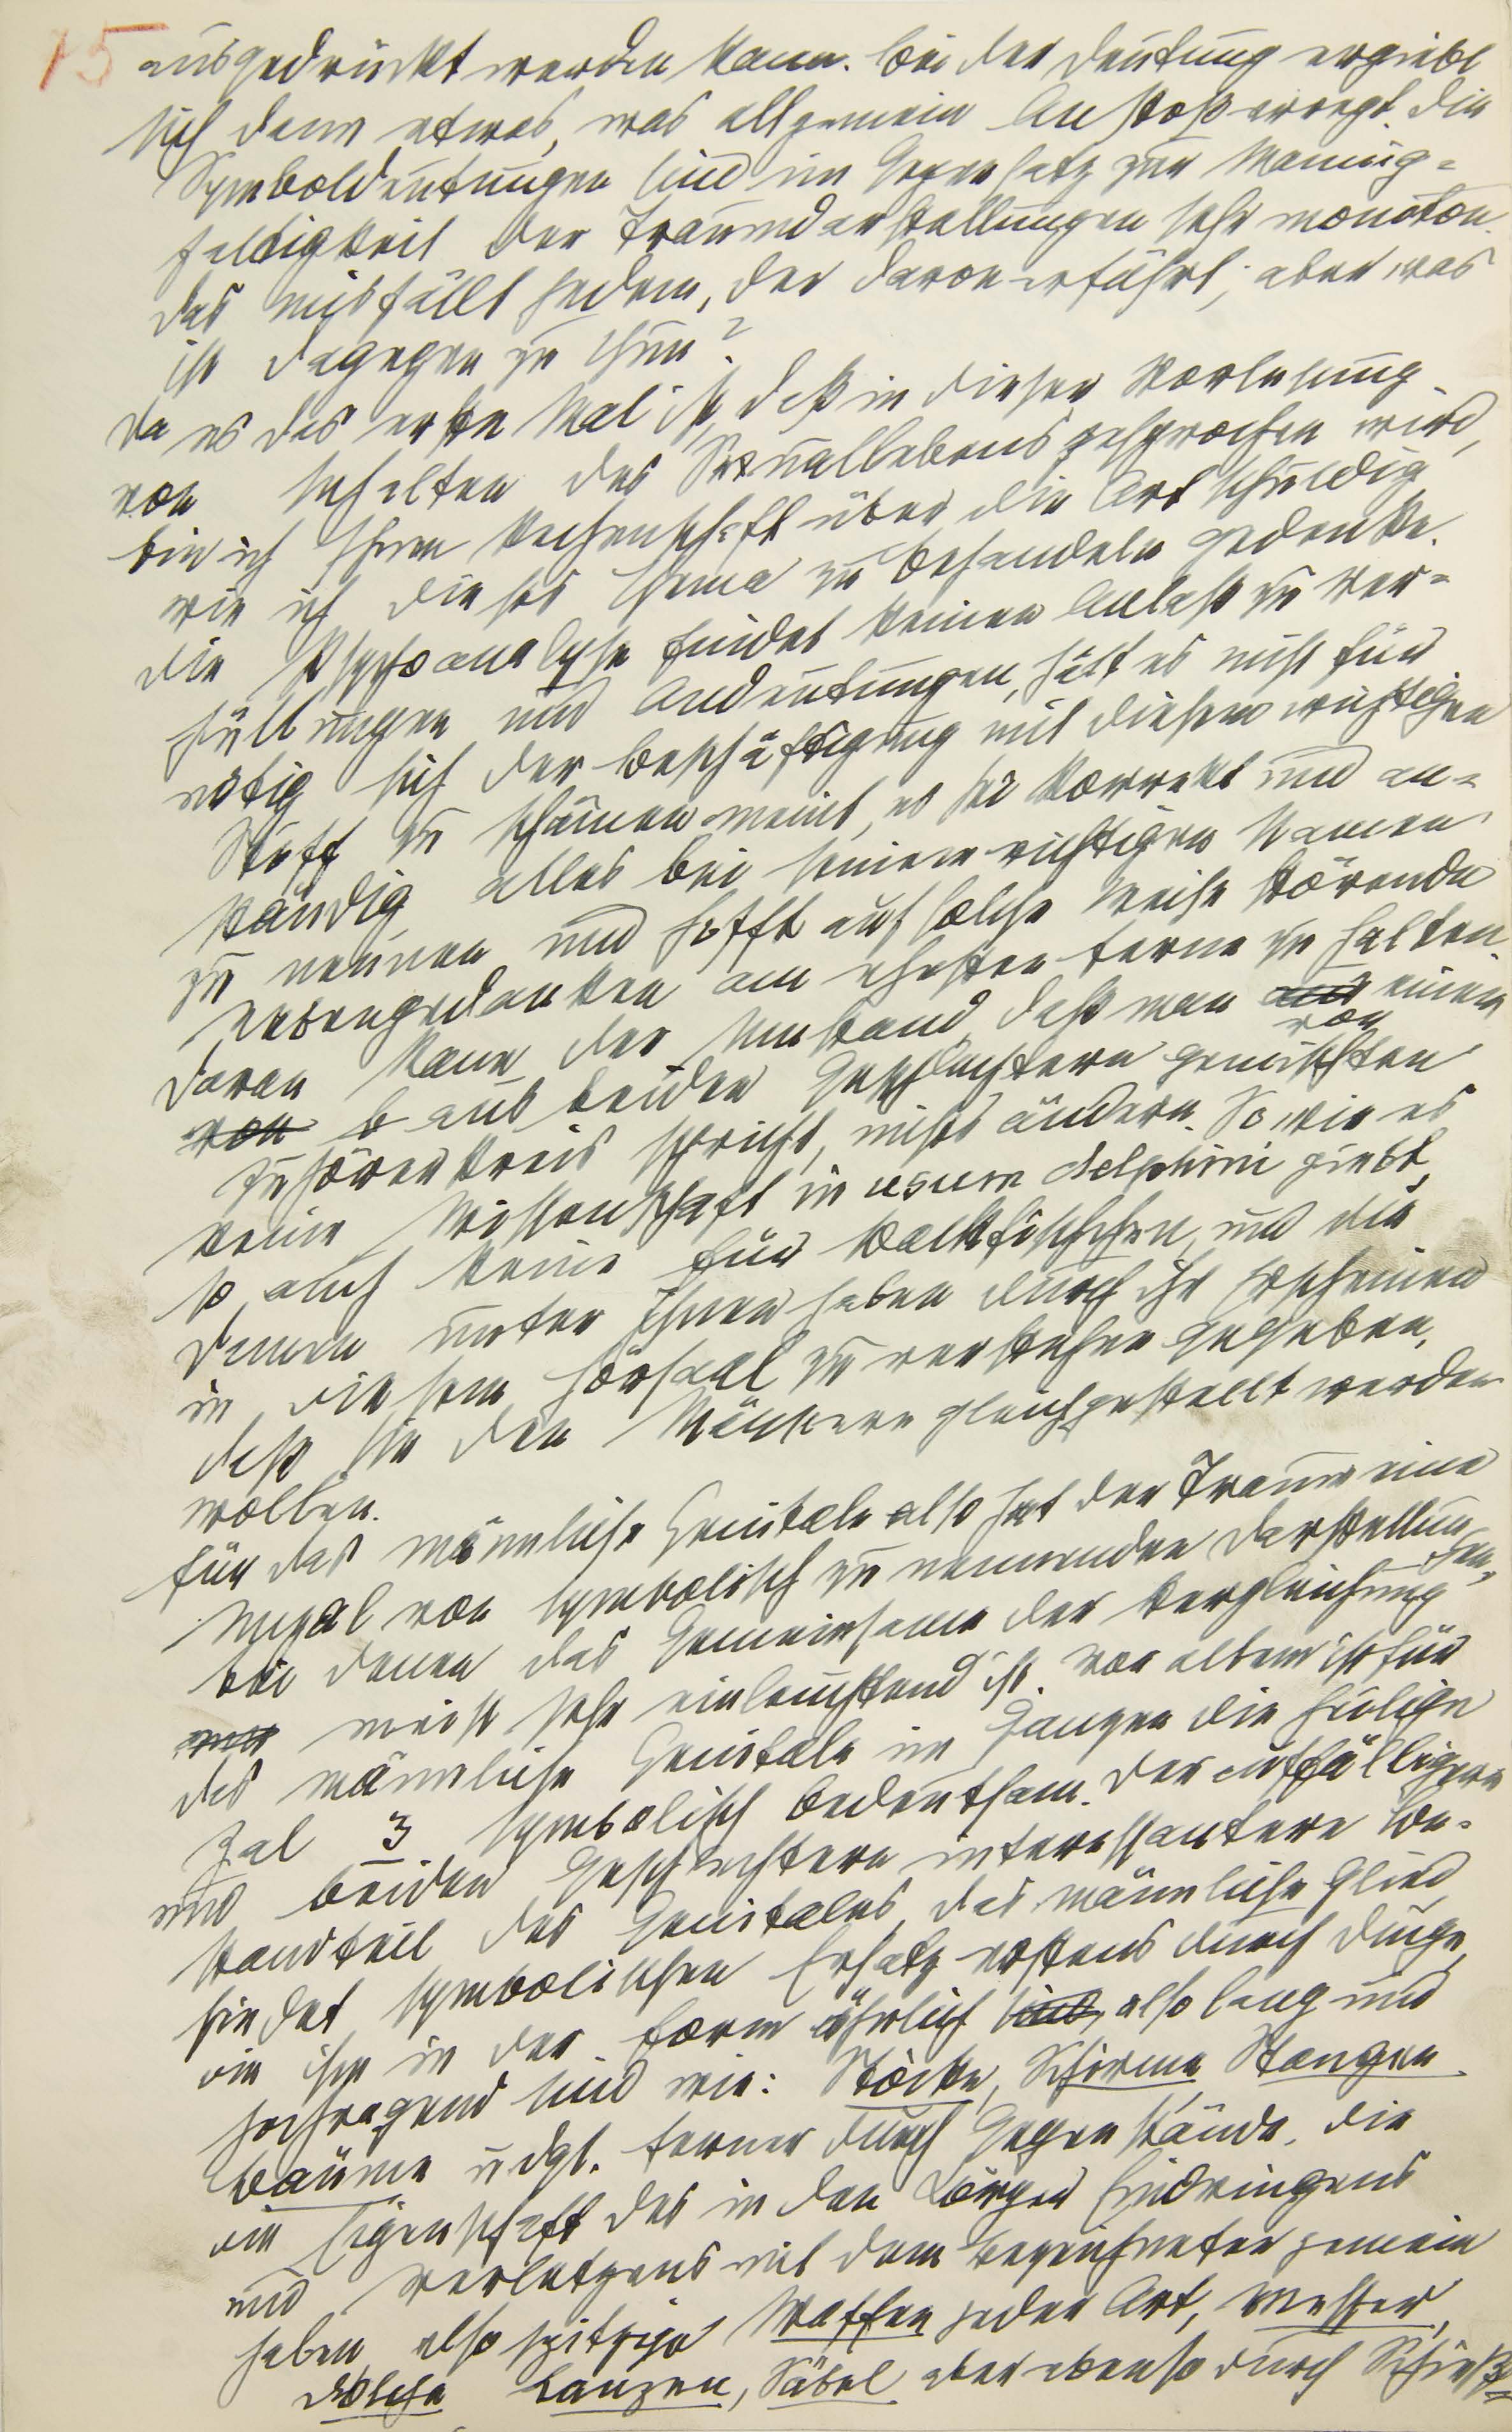 15
ausgedrückt werden kann. Bei der Deutung ergiebt
sich dann etwas, was allgemein Anstoß erregt. Die
Symboldeutungen sind im Gegensatz zur Mannig-
faltigkeit der Traumdarstellungen sehr monoton.
Das misfällt jedem, der davon erfährt; aber was
ist dagegen zu thun?
Da es das erste Mal ist, daß in dieser Vorlesung
von Inhalten des Sexuallebens gesprochen wird,
bin ich Ihnen Rechenschaft über die Art schuldig,
wie ich dieses Thema zu behandeln gedenke.
Die Psychoanalyse findet keinen Anlaß zu Ver-
hüllungen und Andeutungen, hält es nicht für
nötig sich der Beschäftigung mit diesem wichtigen
Stoff zu schämen, meint, es sei korrekt und an-
ständig alles bei seinem richtigen Namen
zu nennen und hofft auf solche Weise störende
Nebengedanken am ehesten ferne zu halten.
Daran kann der Umstand, daß man vor einem
aus beiden Geschlechtern gemischten
Zuhörerkreis spricht, nichts ändern. So wie es
keine Wissenschaft in usum delphini giebt,
so auch keine für Backfischchen, und die
Damen unter Ihnen haben durch ihr Erscheinen
in diesem Hörsaal zu verstehen gegeben,
daß sie den Männern gleichgestellt werden
wollen.
Für das männliche Genitale also hat der Traum eine
Anzal von symbolisch zu nennenden Darstellungen,
bei denen das Gemeinsame der Vergleichung
meist sehr einleuchtend ist. Vor allem ist für
das männliche Genitale im Ganzen die heilige
Zal 3 symbolisch bedeutsam. Der auffälligere
und beiden Geschlechtern interessantere Be-
standteil des Genitales, das männliche Glied
findet symbolischen Ersatz erstens durch Dinge,
die ihm in der Form ähnlich sind, also lang und
hochragend sind wie: Stöcke, Schirme, Stangen
Bäume u dgl. Ferner durch Gegenstände, die
die Eigenschaft des in den Körper Eindringens
und Verletzens mit dem Bezeichneten gemein
haben, also spitzige Waffen jeder Art, Messer,
Dolche Lanzen, Säbel aber ebenso durch Schieß-